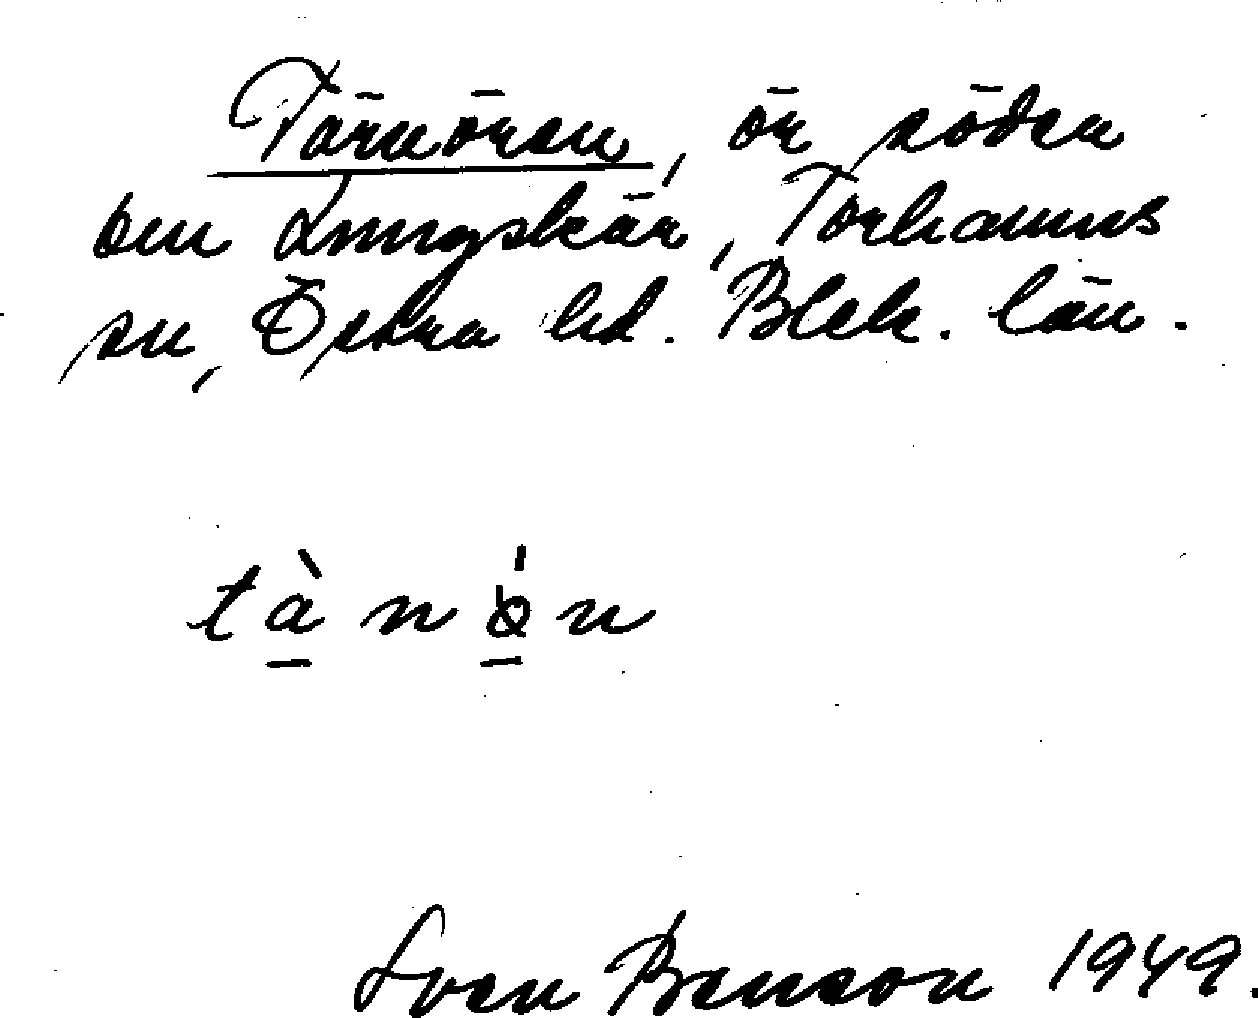 Tärnören, ör söder
om Långskär, Torhamns
sn, Östra hd. Blek. län.
tà n ǿ n
Sven Benson 1949.